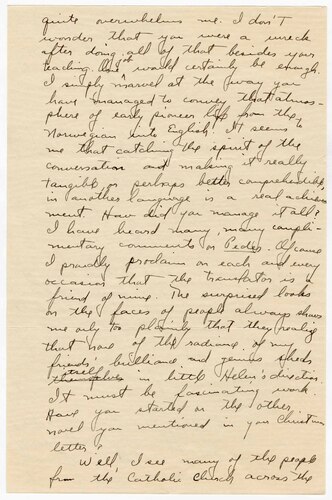 quite overwhelms me. I don't
wonder that you were a wreck
after doing all of that besides your
teaching. That would certainly be enough.
I simply marvel at the way you
have managed to convey that atmos-
phere of early pioneer life from the
Norwegian into English. It seems to
me that catching the spirit of the
conversation and making it really
tangible or perhaps better comprehensible
in another language is a real achieve
ment. How did you manage it all?
I have heard many, many compli-
mentary comments on Peder. Of course
I proudly proclaim on each and every
occasion that the translator is a
friend of mine. The surprised looks
on the faces of people always shows
me only to plainly that they realize
that none of the radiance of my
friends' brilliance and genius sheds
itself in little Helen's direction.
It must be fascinating work.
Have you started on the other
novel you mentioned in your Christmas
letter?
Well, I see many of the people
from the Catholic Church across the